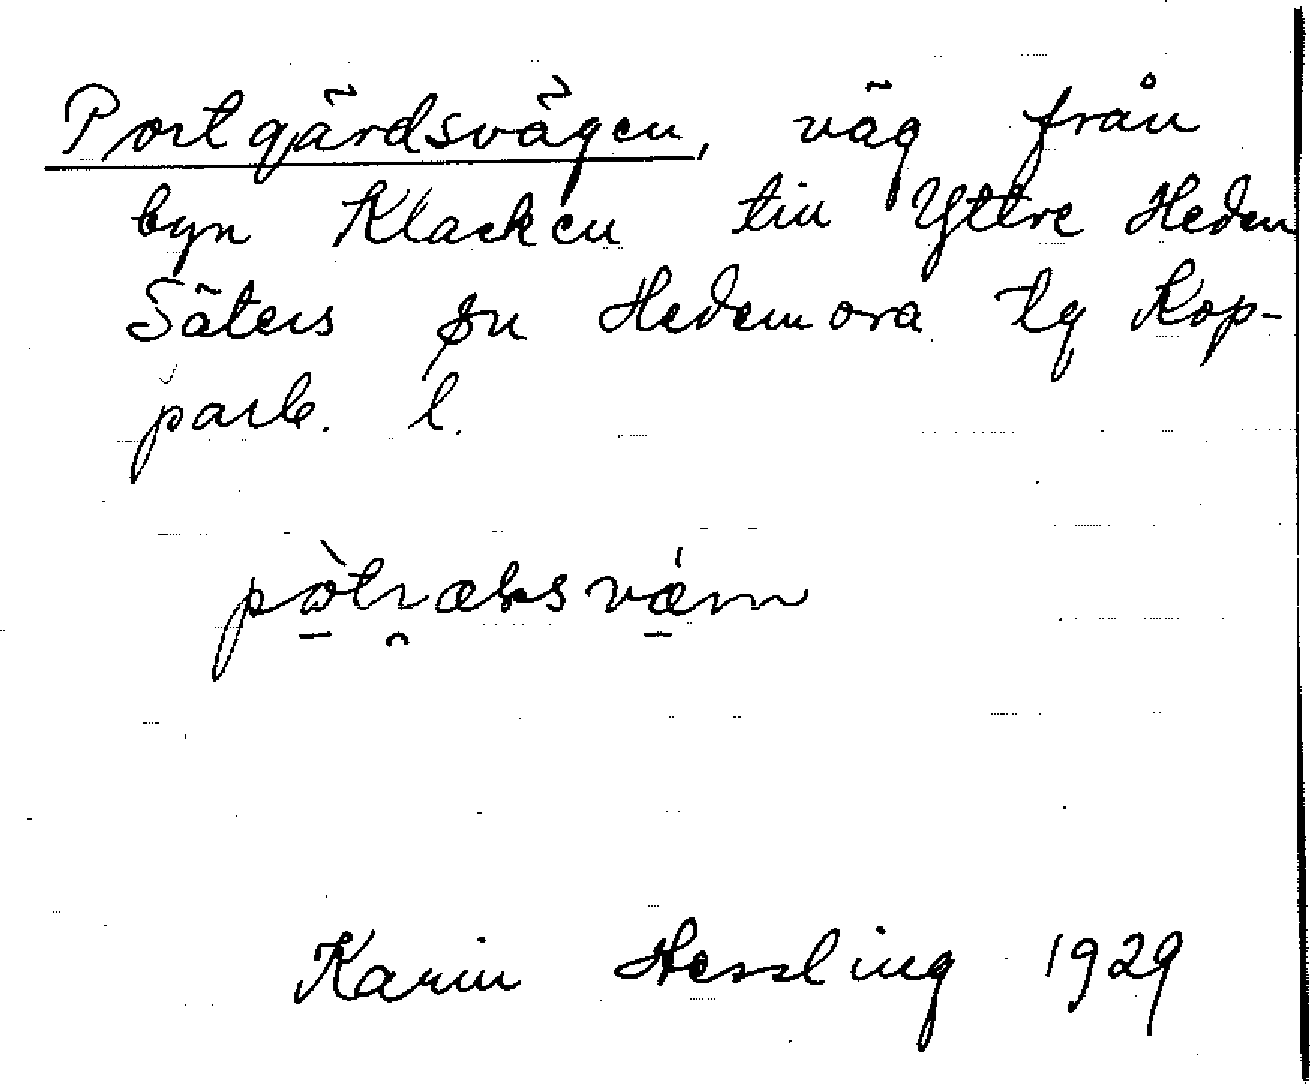 Portgärdsvägen, väg från
byn Klacken till Yttre Heden
Säters sn Hedemora tg Kop-
parb. l.
Karin Hessling 1929